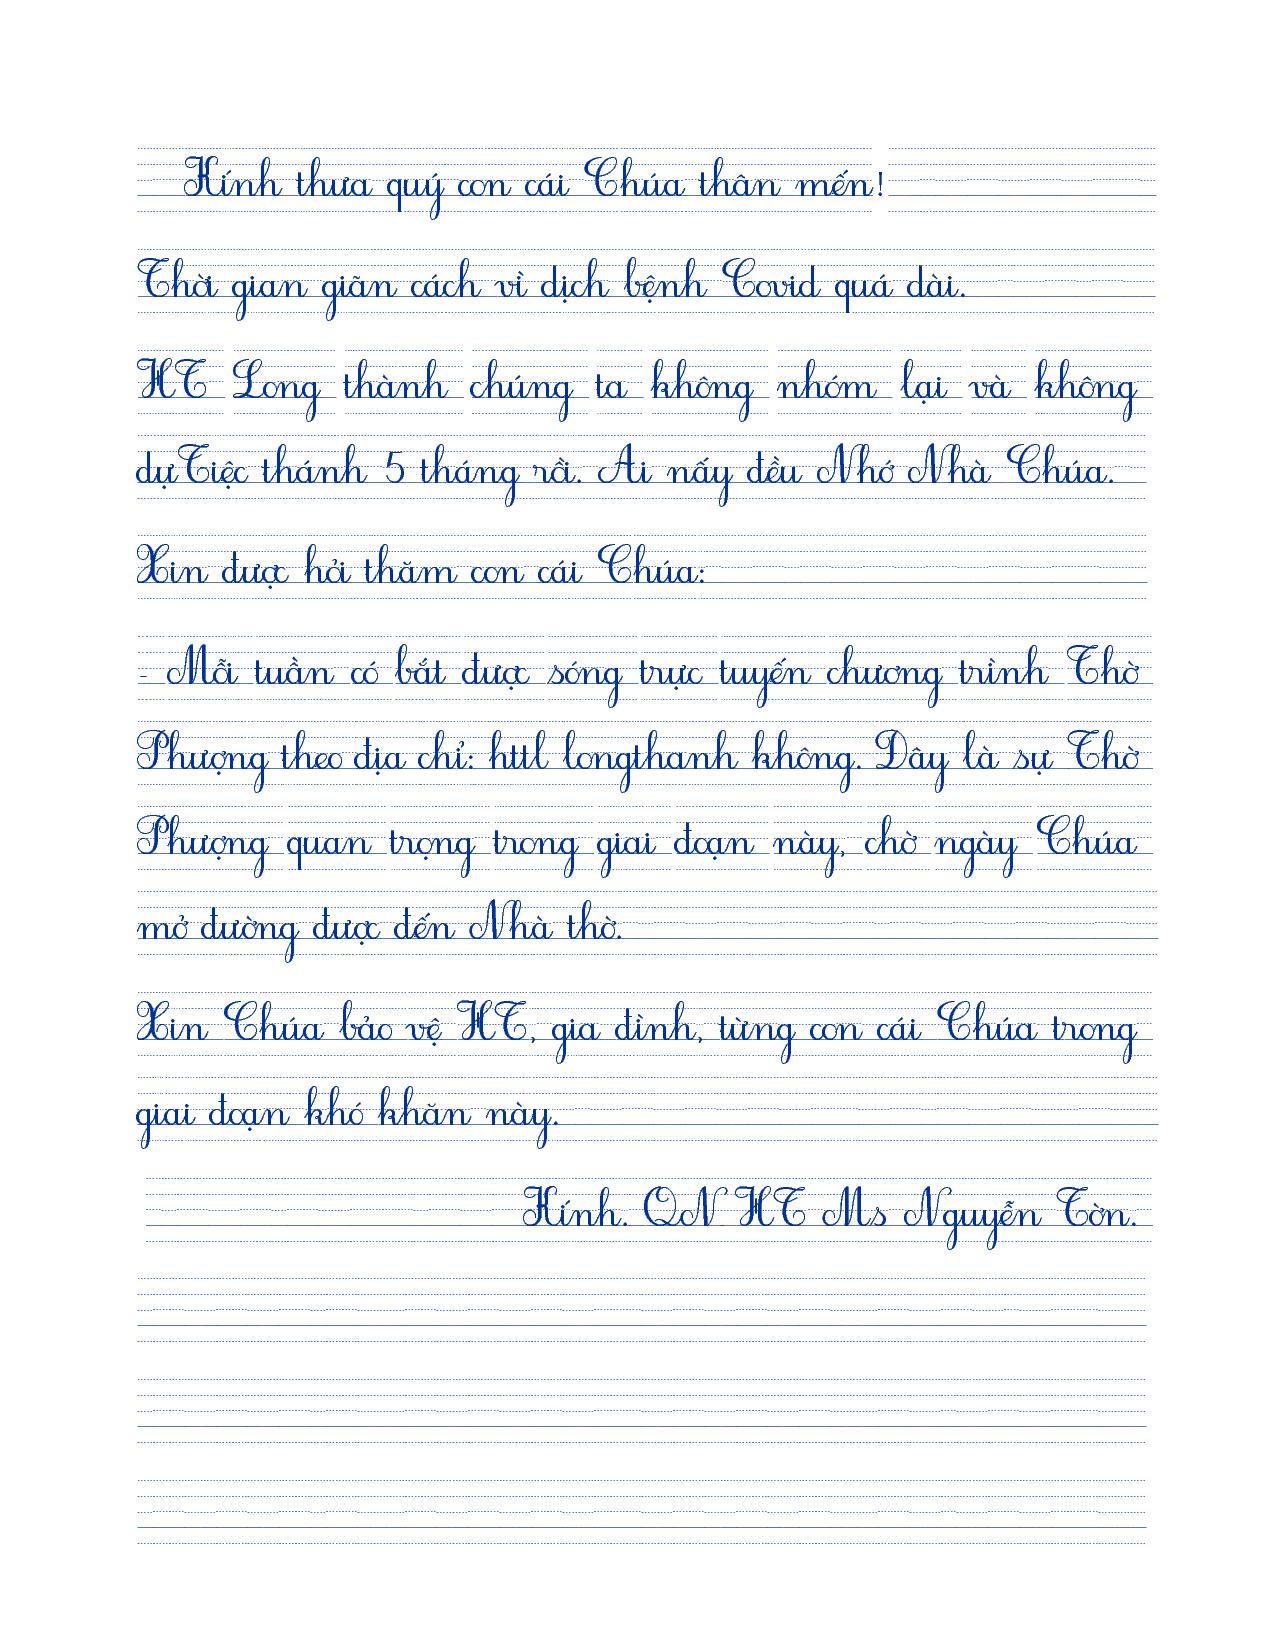 Kính thưa quý con cái Chúa thân mến!
Thời gian giãn cách vì dịch bệnh Covid quá dài.
HT Long thành chúng ta không nhóm lại và không
dựTiệc thánh 5 tháng rồi. Ai nấy đều Nhớ Nhà Chúa.
Xin được hỏi thăm con cái Chúa:
- Mỗi tuần có bắt được sóng trực tuyến chương trình Thờ
Phượng theo địa chỉ: httl longthanh không. Dây là sự Thờ
Phượng quan trọng trong giai đoạn này, chờ ngày Chúa
mở đường được đến Nhà thờ.
Xin Chúa bảo vệ HT, gia đình, từng con cái Chúa trong
giai đoạn khó khăn này.
Kính. QN HT Ms Nguyễn Tờn.